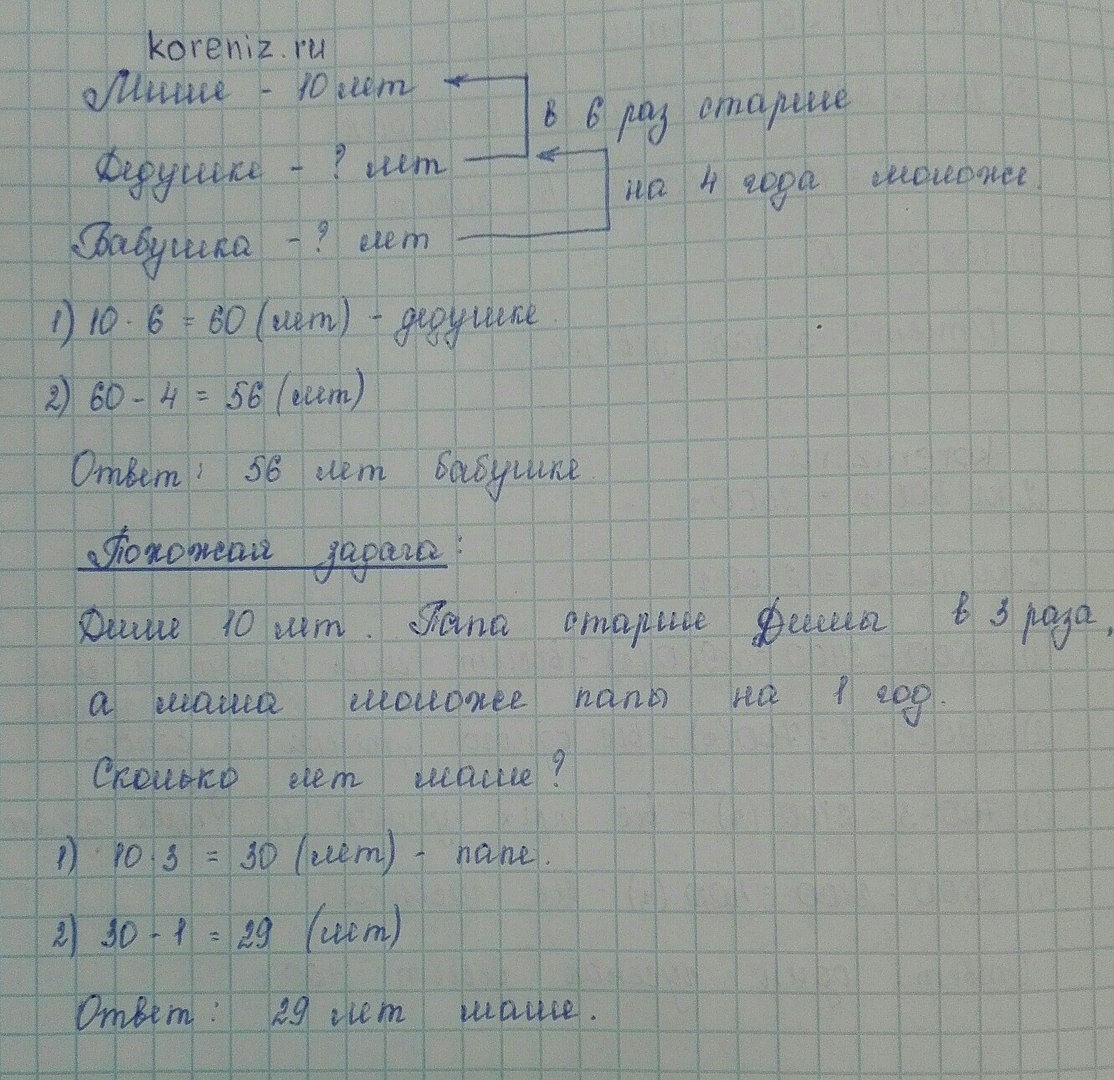 koreniz.ru
Мише - 10 лет
в 6 раз старше
Дедушке - ? лет
на 4 года моложе
Бабушка - ? лет
1) 10 · 6 = 60 (лет) - дедушке
2) 60 - 4 = 56 (лет)
Ответ: 56 лет бабушке
Похожая задача:
Диме 10 лет. Папа старше Димы в 3 раза,
а мама моложе папы на 1 год.
Сколько лет маме?
1) 10 · 3 = 30 (лет) - папе.
2) 30 - 1 = 29 (лет)
Ответ: 29 лет маме.